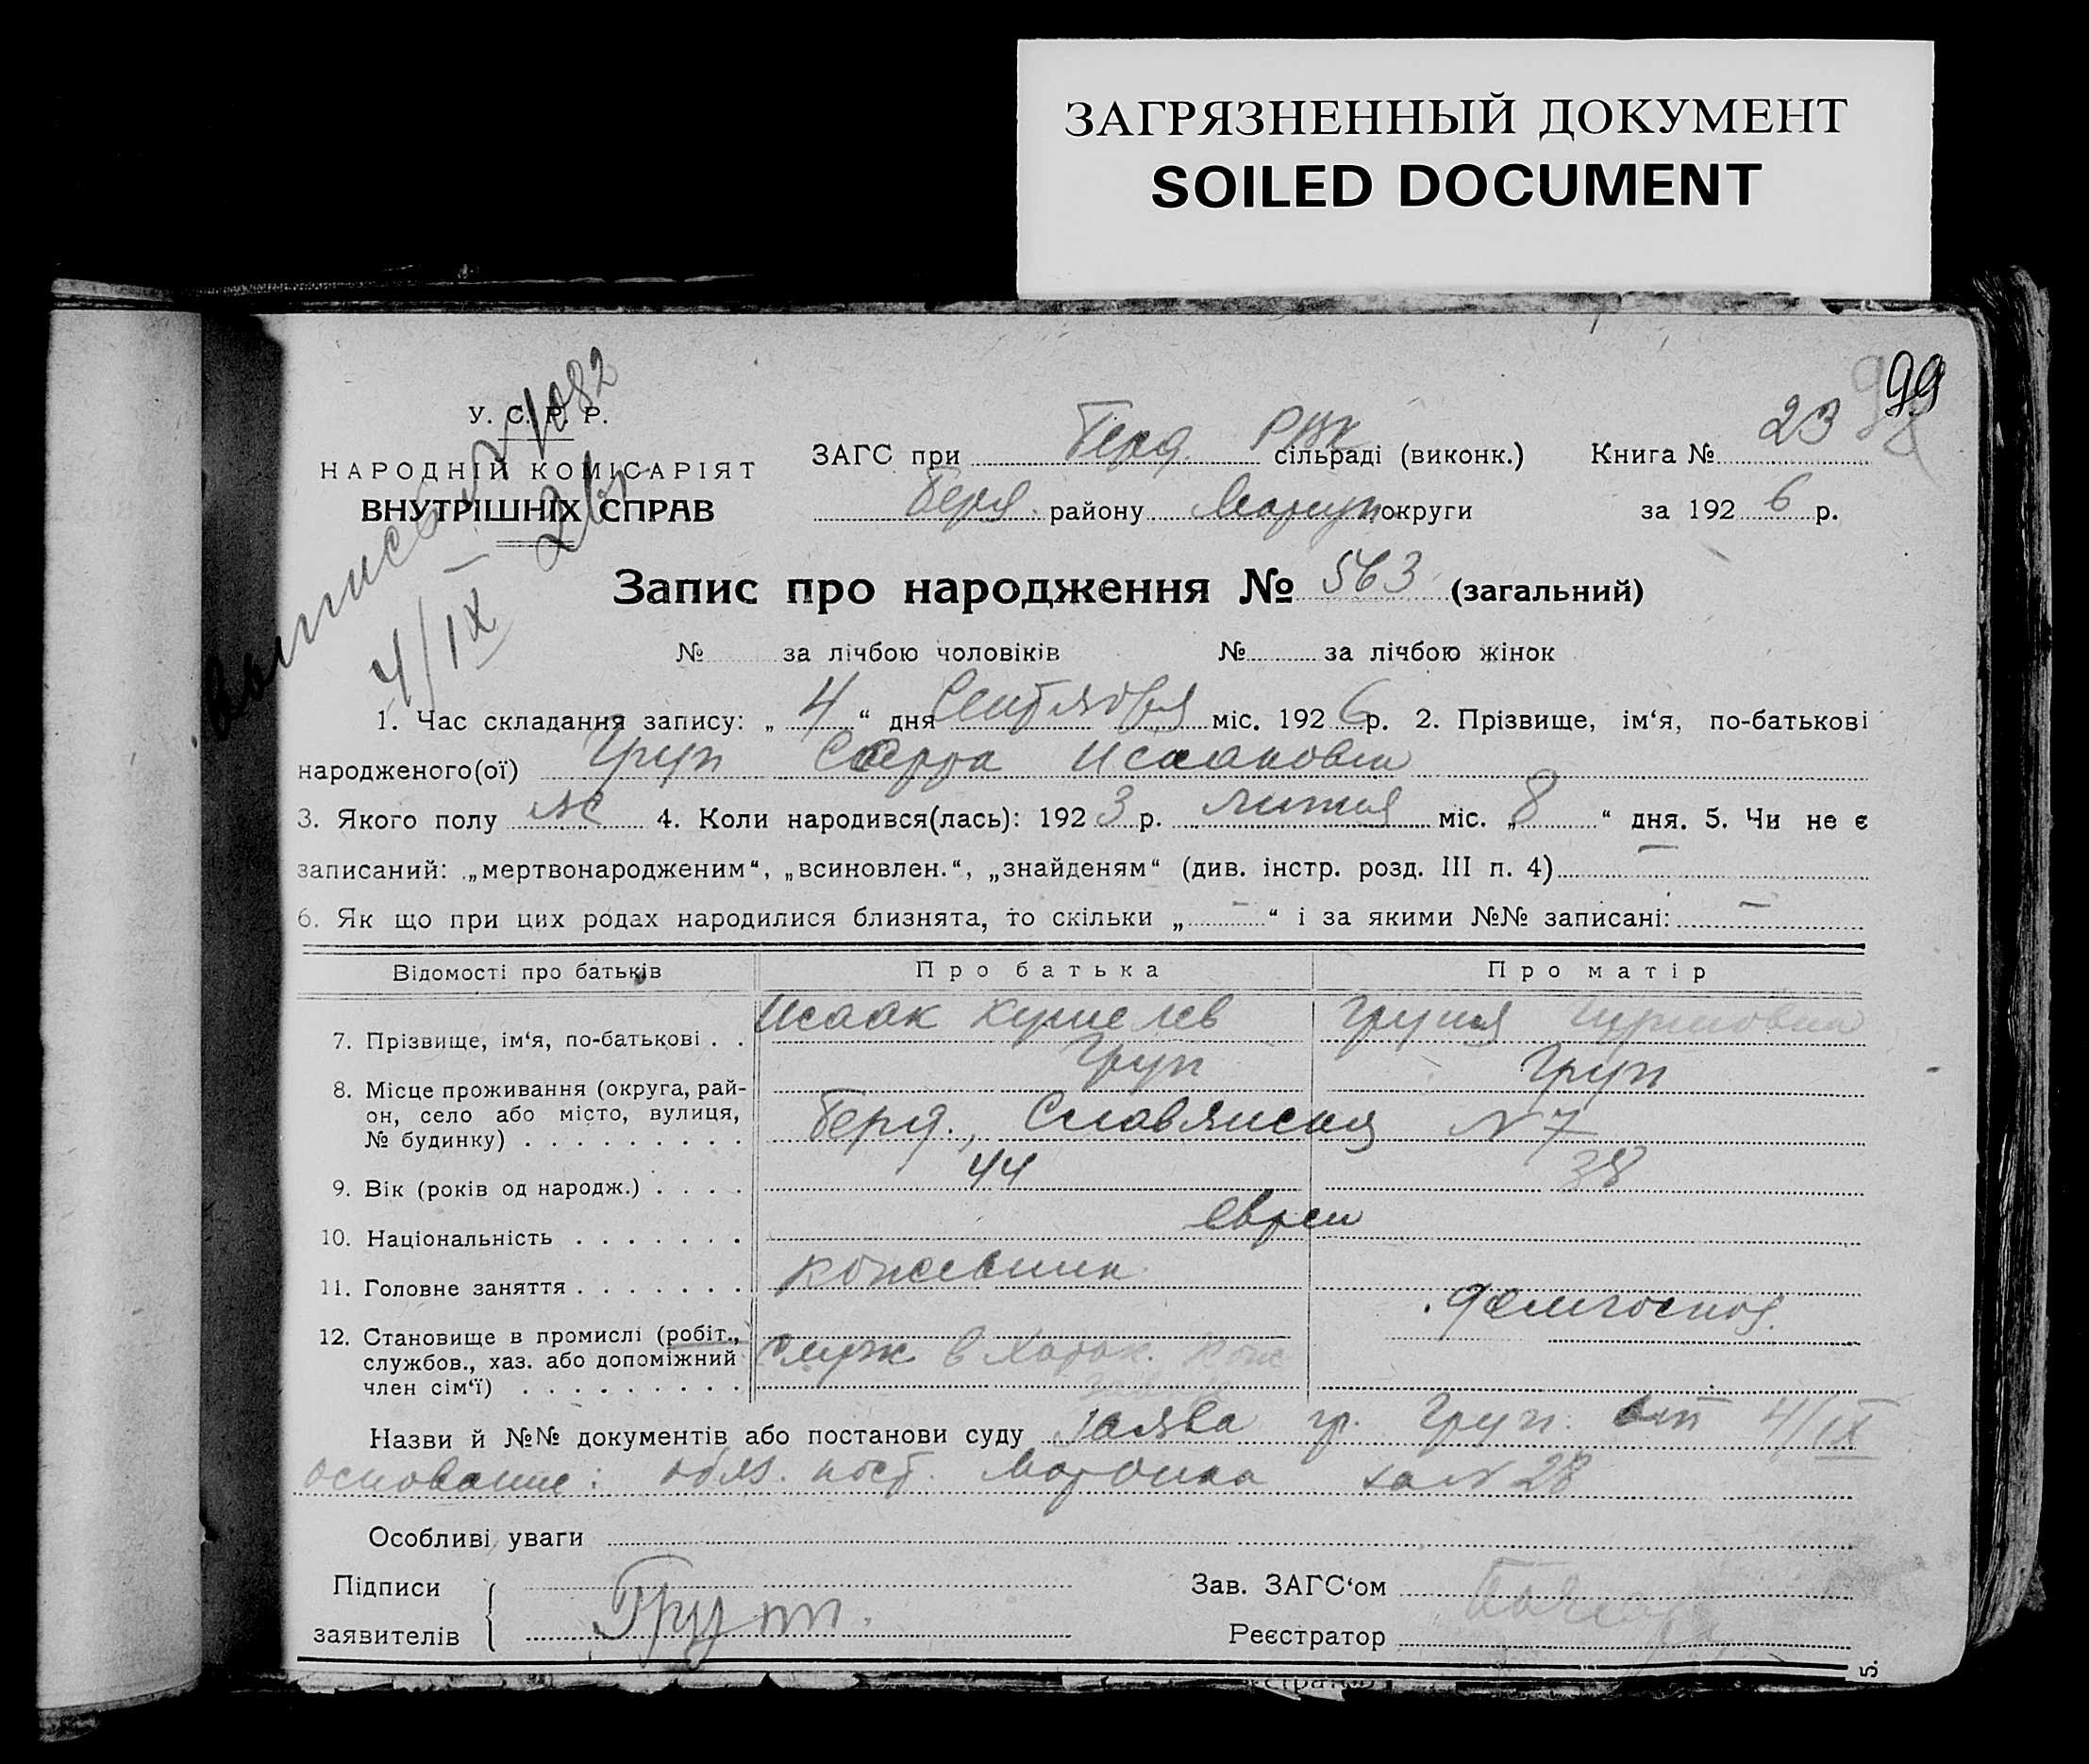 ЗАГРЯЗНЕННЫЙ ДОКУМЕНТ
SOILED DOCUMENT
99
У. С. Р. Р.
НАРОДНІЙ КОМІСАРІЯТ
ВНУТРІШНІХ СПРАВ
4/IX
ЗАГС при Берд. РВК сільраді (виконк.) Книга № 23
Берд. району Мариуп округи за 1926 р.
Запис про народження № 563 (загальний)
№ за лічбою чоловіків № за лічбою жінок
1. Час складання запису: „ 4 “ дня Сентября міс. 1926 р. 2. Прізвище, ім‘я, по-батькові
народженого(ої) Груп Сарра Исааковна
3. Якого полу ж 4. Коли народився(лась): 1923 р. міс. „ 8 “ дня. 5. Чи не є
записаний: „мертвонародженим“, „всиновлен.“, „знайденям“ (див. інстр. розд. III п. 4) —
6. Як що при цих родах народилися близнята, то скільки „ — “ і за якими №№ записані: —
Відомості про батьків Про батька Про матір
7. Прізвище, ім‘я, по-батькові . . Исаак Кушелев
Груп Груп
8. Місце проживання (округа, рай-
он, село або місто, вулиця,
№ будинку) . . . . . . . . . Берд., Славянская № 7
9. Вік (років од народж.) . . . . 44 38
10. Національність . . . . . . . евреи
11. Головне заняття . . . . . . . кожевник
домгоспод.
12. Становище в промислі (робіт.,
службов., хаз. або допоміжний служ в
член сім‘ї) . . . . . . . . .
Назви й №№ документів або постанови суду заява гр. Груп от 4/IX
основание: за № 28
Особливі уваги
Підписи
заявителів Груп.
Зав. ЗАГС‘ом
Реєстратор
5.